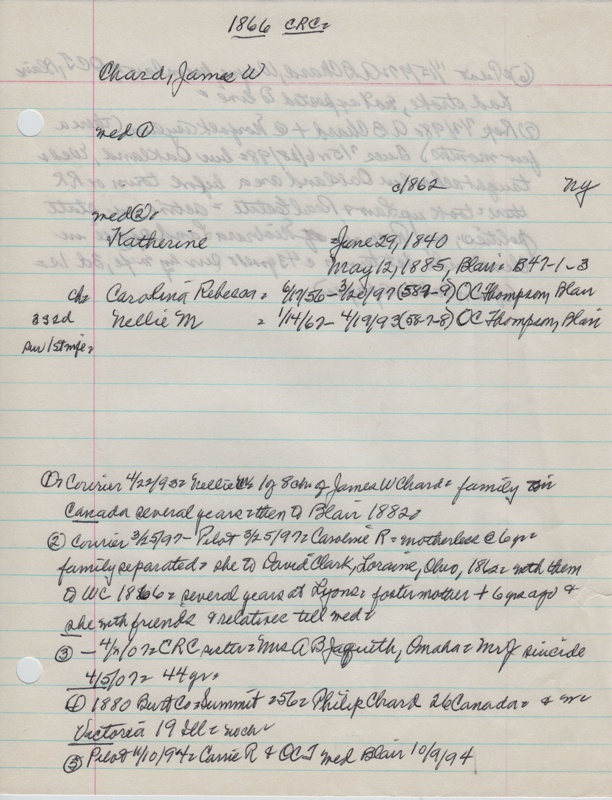 1866 CRC=
Chard, James W
med ①
c/1862 NY
med ②=
Katherine =June 29, 1840
May 12, 1885, Blair= B47-1-3
ch= Carolina Rebecca= 6/17/56- 3/20/97 (587-9) OC Thompson, Blair
332d Nellie M = 1/14/67- 4/19/93 (587-8) OC Thompson, Blair
sur 1st wife=
①= Courier 4/22/93= Nellie 1 of 8 ch of James W Chard= family in
Canada several years= then to Blair 1882=
② Courier 3/25/97- Pilot 3/25/97= Caroline R= motherless @ 6 yr=
family separated= she to David Clark, Loraine, Ohio, 1862= with them
to WC 1866= several years at Lyons= foster mother + 6 yrs ago &
she with friends & relatives till med=
③ - 4/ /07= CRC sister= Mrs A B Jaquith, Omaha= Mr J suicide
4/5/07= 44 yr=
④ 1880 Burt Co= Summit =56= Philip Chard 26 Canada= &
Victoria 19 Ill= no ch=
⑤ Pilot 11/10/94= Carrie R & OCT med Blair 10/9/94